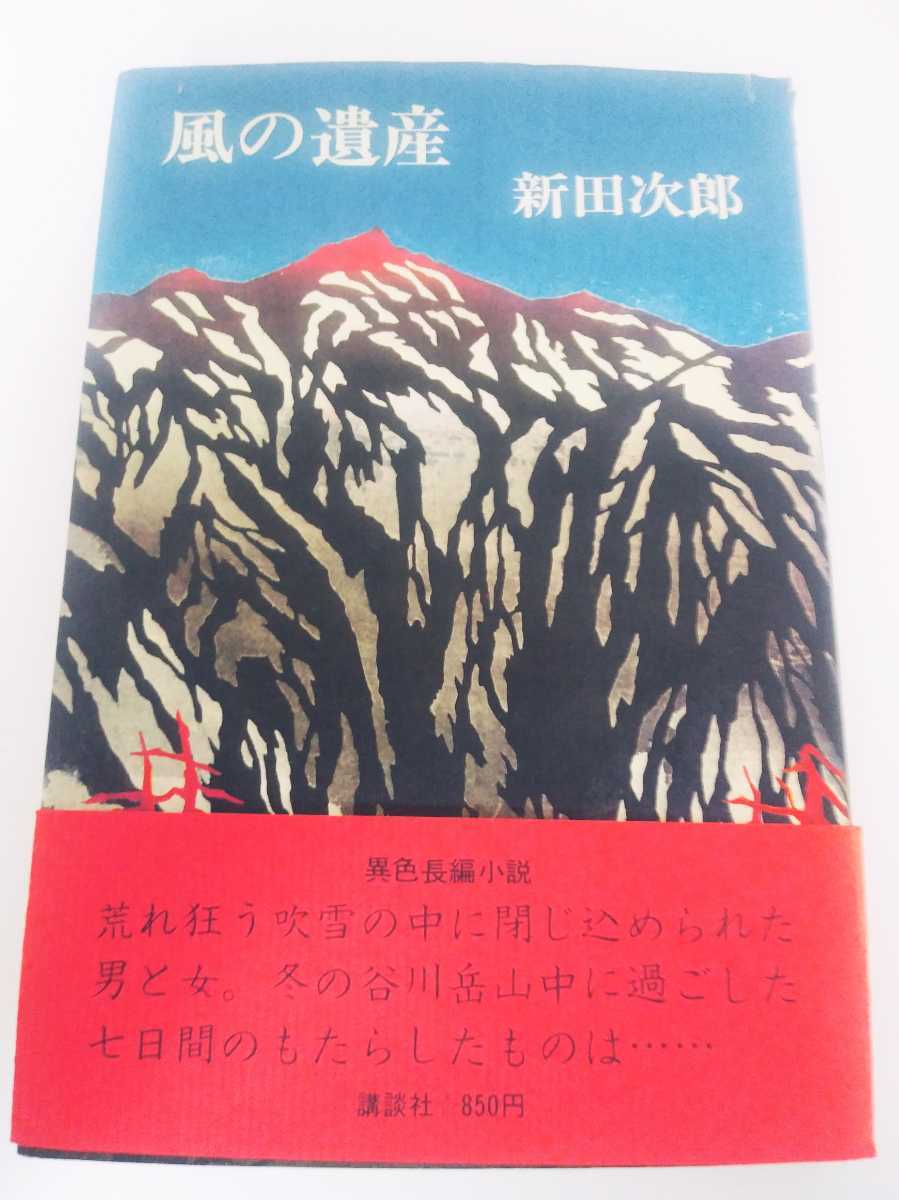 風の遺産
新田次郎
異色長編小説
荒れ狂う吹雪の中に閉じ込められた
男と女。冬の谷川岳山中に過ごした
七日間のもたらしたものは……
講談社 850円